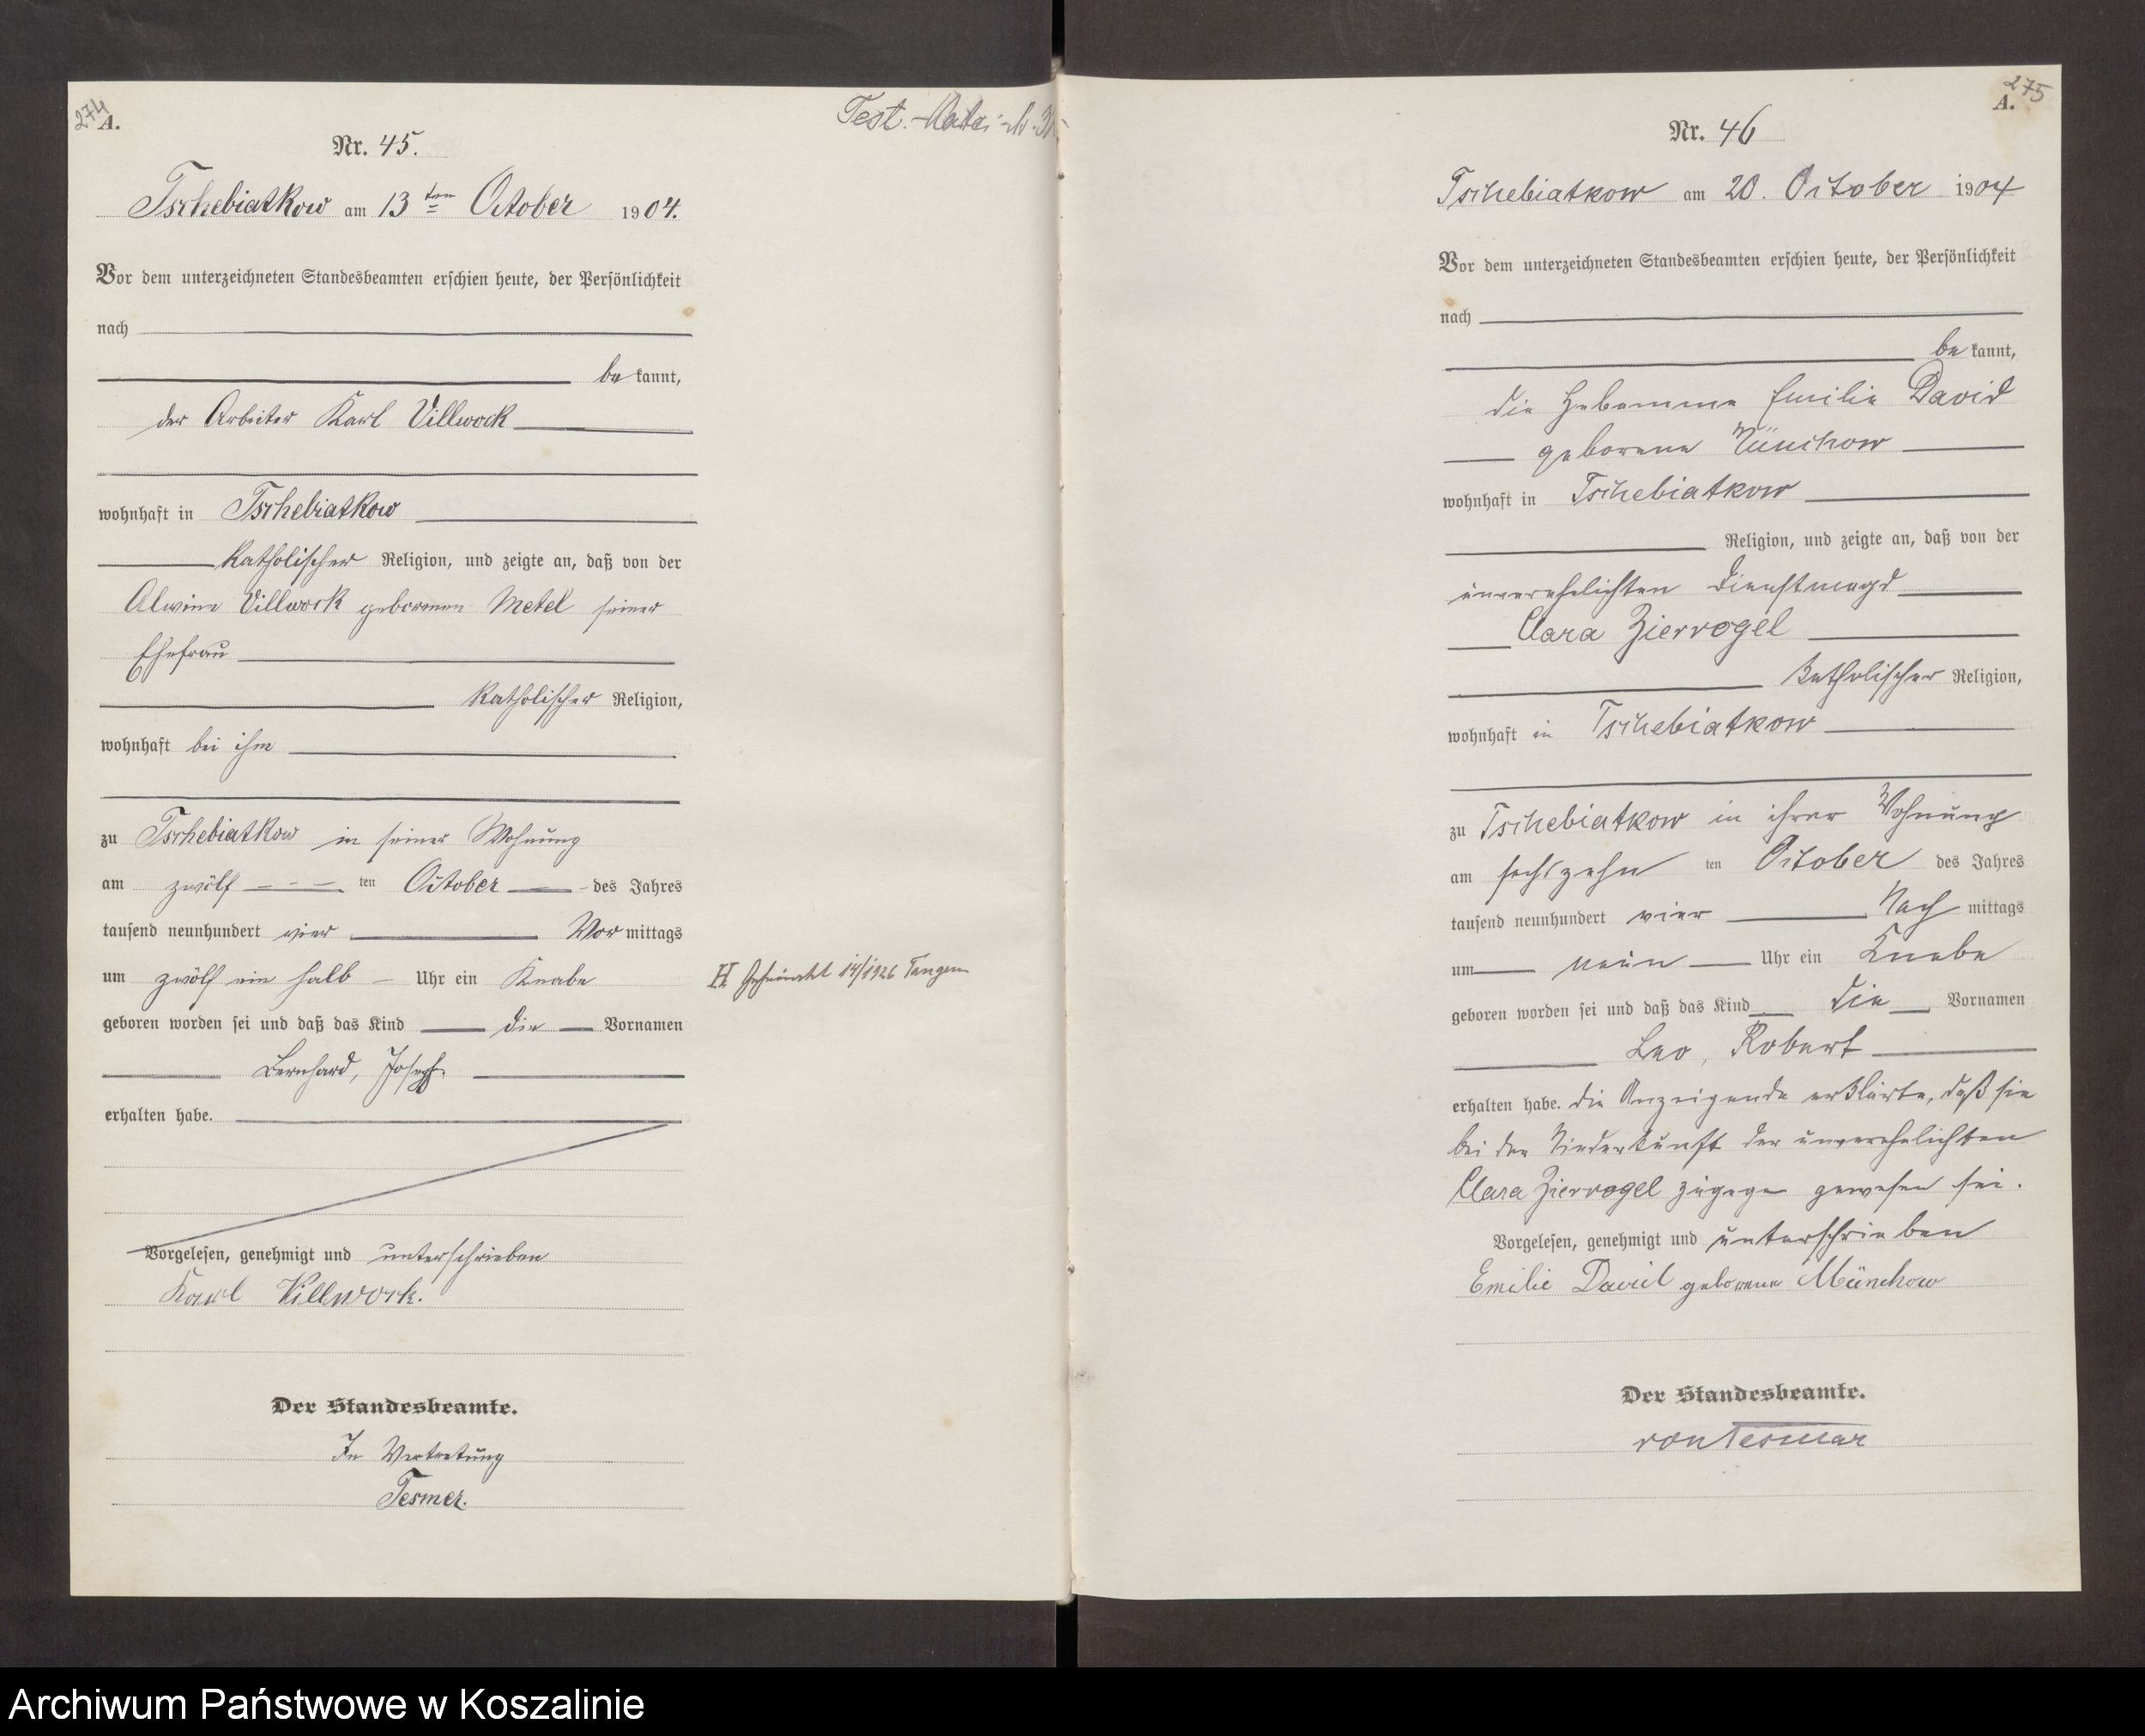 274
A.
Test.
Nr. 45.
Tschebiatkow am 13 ten October 1904.
Vor dem unterzeichneten Standesbeamten erschien heute, der Persönlichkeit
nach
be kannt,
der Arbeiter Karl Villwock
wohnhaft in Tschebiatkow
katholischer Religion, und zeigte an, daß von der
Alwine Villwock geborenen Metel seiner
Ehefrau
katholischer Religion,
wohnhaft bei ihm
zu Tschebiatkow in seiner Wohnung
am zwölf ten October des Jahres
tausend neunhundert vier Vor mittags
um zwölf ein halb Uhr ein Knabe
H. 14/1926 Tangen
geboren worden sei und daß das Kind die Vornamen
Bernhard, Joseph
erhalten habe.
Vorgelesen, genehmigt und unterschrieben
Karl Villwock.
Der Standesbeamte.
In Vertretung
Tesmer.
275
A.
Nr. 46
Tschebiatkow am 20. October 1904
Vor dem unterzeichneten Standesbeamten erschien heute, der Persönlichkeit
nach
be kannt,
die Hebamme Emilie David
geborene Münchow
wohnhaft in Tschebiatkow
Religion, und zeigte an, daß von der
unverehelichten Dienstmagd
Clara Ziervogel
katholischer Religion,
wohnhaft in Tschebiatkow
zu Tschebiatkow in ihrer Wohnung
am sechszehn ten October des Jahres
tausend neunhundert vier Nach mittags
um neun Uhr ein Knabe
geboren worden sei und daß das Kind die Vornamen
Leo, Robert
erhalten habe. Die Anzeigende erklärte, daß sie
bei der Niederkunft der unverehelichten
Clara Ziervogel zugegen gewesen sei.
Vorgelesen, genehmigt und unterschrieben
Emilie David geborene Münchow
Der Standesbeamte.
von Tesmar
Archiwum Państwowe w Koszalinie